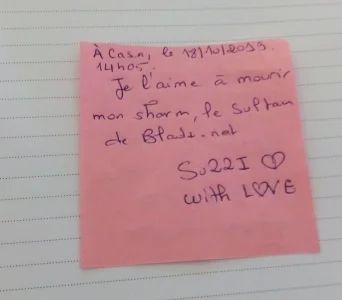 À Casa, le 18/10/2019.
14h05.
Je l'aime à mourir
mon sharm, le sultan
de Blad1.net
SuzzI
with LOVE